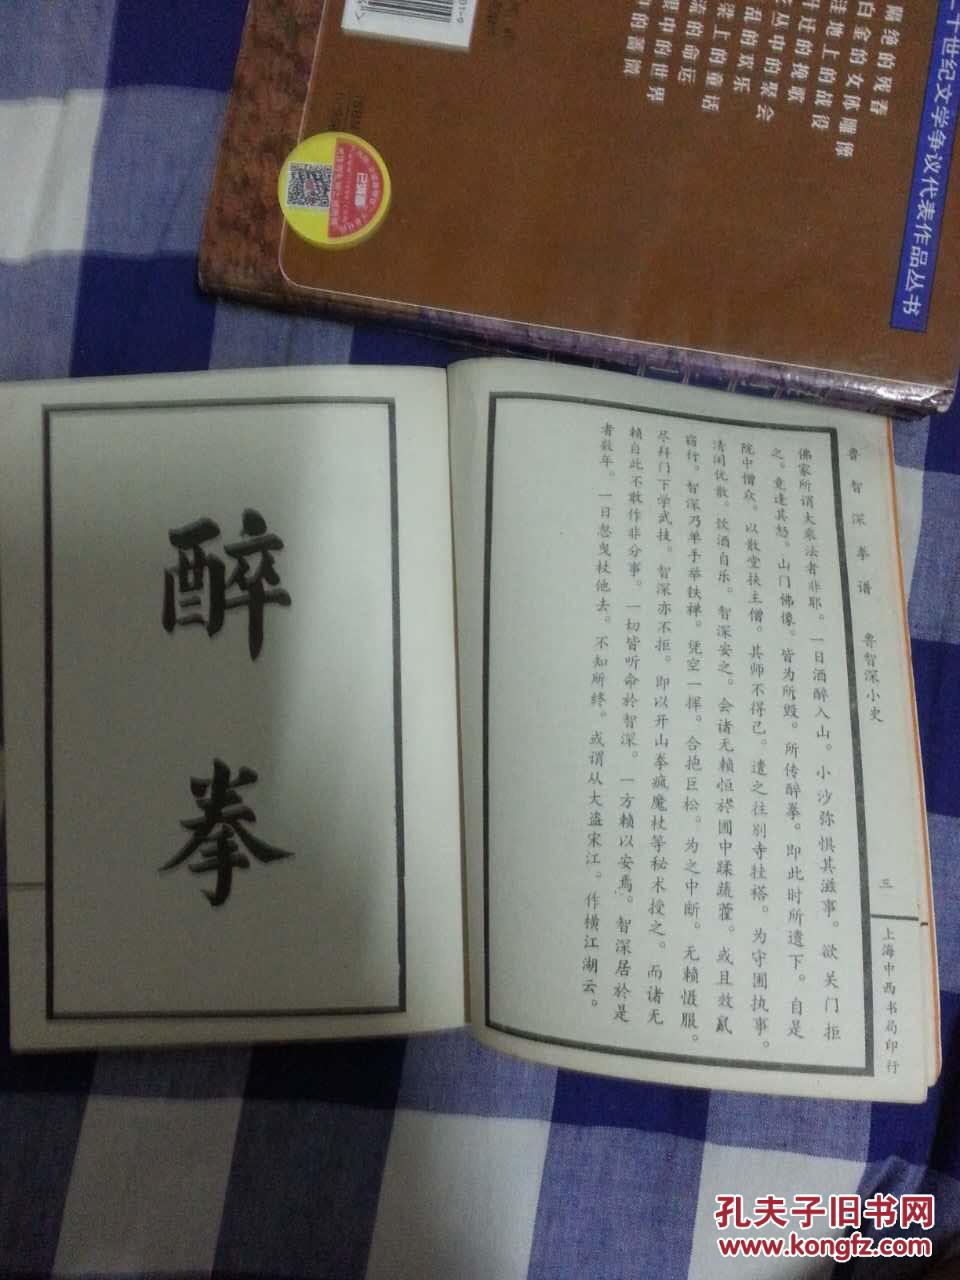 二十世纪文学争议代表作品丛书
隅绝的残春
白金的女体雕像
洼地上的战役
丛中的聚会
乱的欢乐
梁上的童话
流的命运
眼中的世界
的蔷薇
鲁智深拳谱 鲁智深小史
三
上海中西书局印行
佛家所谓大乘法者非耶。一日酒醉入山。小沙弥惧其滋事。欲关门拒
之。竟逢其怒。山门佛像。皆为所毁。所传醉拳。即此时所遗下。自是
院中僧众。以散堂挟主僧。其师不得已。遣之往别寺挂褡。为守圃执事。
清闲优散。饮酒自乐。智深安之。会诸无赖恒於圃中蹂蔬藿。或且效鼠
窃行。智深乃单手举铁禅。凭空一挥。合抱巨松。为之中断。无赖慑服。
尽拜门下学武技。智深亦不拒。即以开山拳疯魔杖等秘术授之。而诸无
赖自此不敢作非分事。一切皆听命於智深。一方赖以安焉。智深居於是
者数年。一日忽曳杖他去。不知所终。或谓从大盗宋江。作横江湖云。
醉拳
孔夫子旧书网
www.kongfz.com